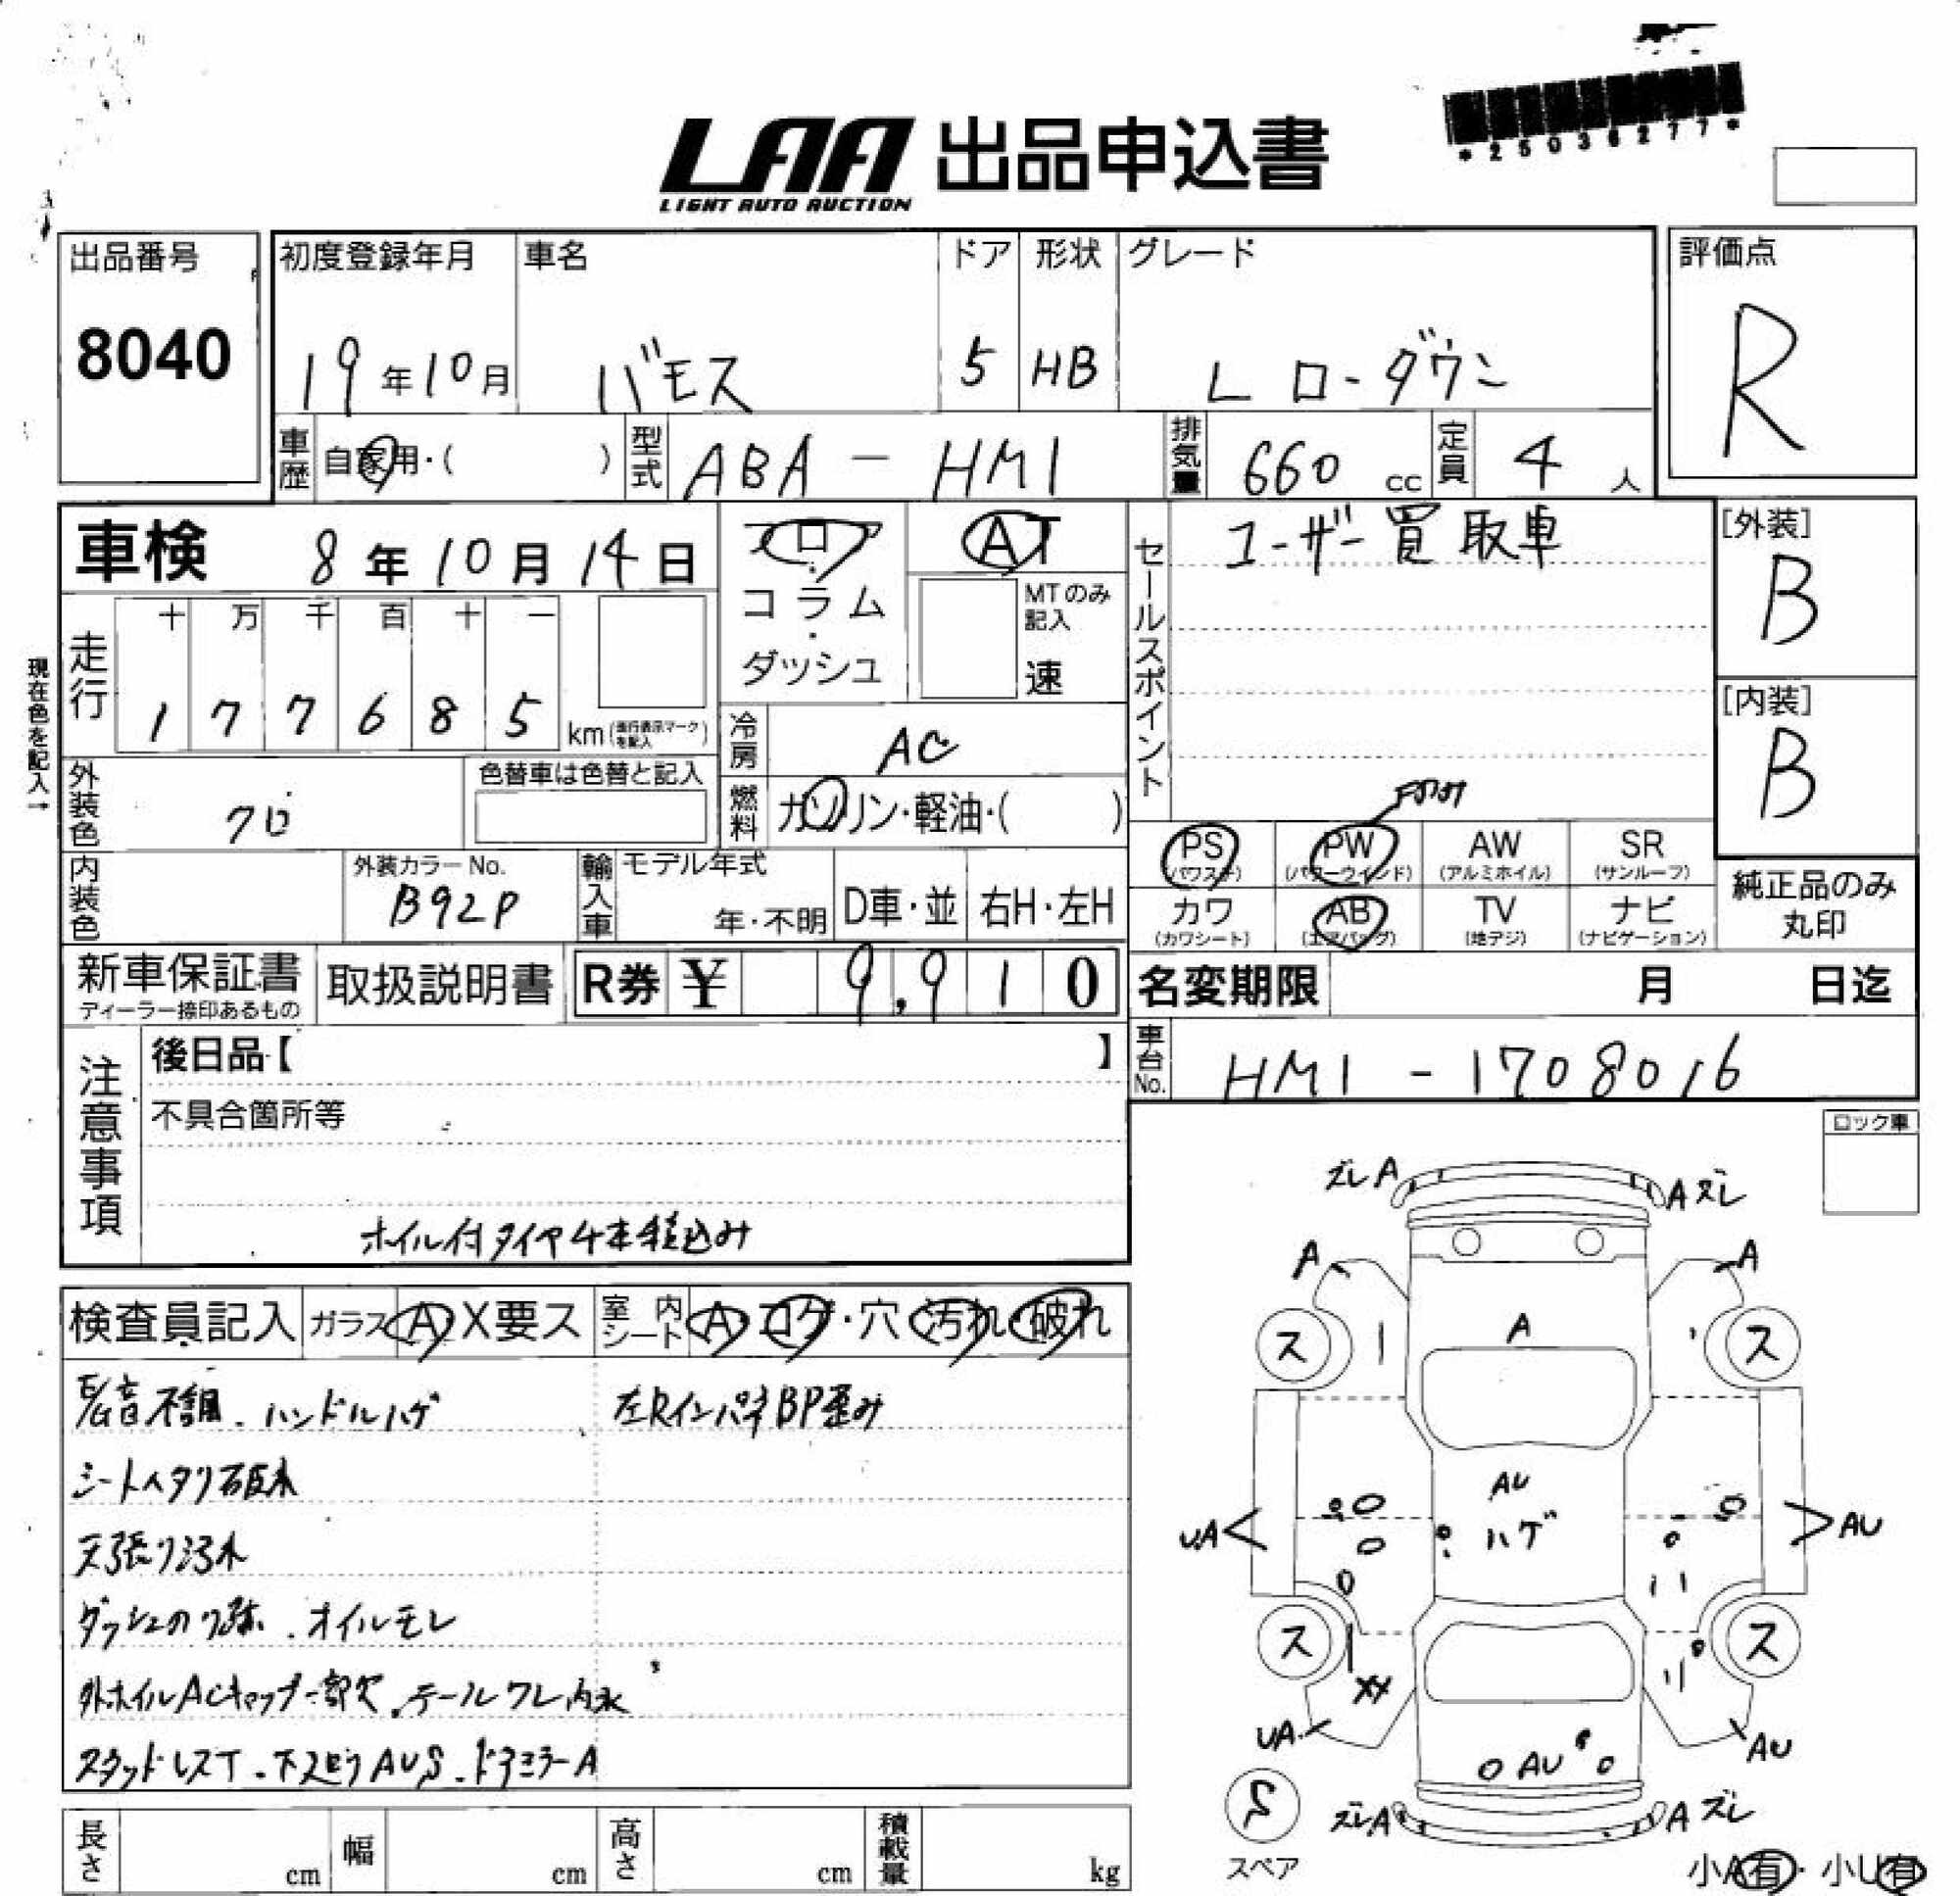 LAA 出品申込書
LIGHT AUTO AUCTION
*25036277*
出品番号
8040
初度登録年月
19年10月
車名
バモス
ドア
5
形状
HB
グレード
L ローダウン
評価点
R
車歴
自家用・( )
型式
ABA - HM1
排気量
660 cc
定員
4 人
車検 8年10月14日
フロア・コラム・ダッシュ
AT
MTのみ記入
速
セールスポイント
ユーザー買取車
[外装]
B
[内装]
B
現在色を記入→
走行
十 万 千 百 十 一
1 7 7 6 8 5
km(走行表示マークを記入)
冷房
AC
燃料
ガソリン・軽油・( )
外装色
クロ
色替車は色替と記入
内装色
外装カラーNo.
B92P
輸入車
モデル年式
年・不明
D車・並
右H・左H
PS
(パワステ)
PW
(パワーウインド)
AW
(アルミホイル)
SR
(サンルーフ)
カワ
(カワシート)
AB
(エアバッグ)
TV
(地デジ)
ナビ
(ナビゲーション)
純正品のみ
丸印
新車保証書
ディーラー捺印あるもの
取扱説明書
R券 ¥ 9,910
名変期限 月 日迄
車台No.
HM1 - 1708016
注意事項
後日品【 】
不具合箇所等
ホイル付タイヤ4本積込み
ロック車
検査員記入
ガラス A X要ス
室内シート A・コゲ・穴・汚れ・破れ
不調.ハンドルハゲ
左RインパネBP歪み
シートヘタリ破れ
天張り汚れ
ダッシュのり跡.オイルモレ
外ホイルACキャップ一部欠.テールワレ内水
スタッドレスT.下廻りAUS.ドアミラーA
ズレA
Aズレ
A
A
ス
ス
A
AU
ハゲ
UA
AU
ス
ス
XX
UA
AU
AU
S
スペア
ズレA
Aズレ
小A有・小U有
長さ cm
幅 cm
高さ cm
積載量 kg